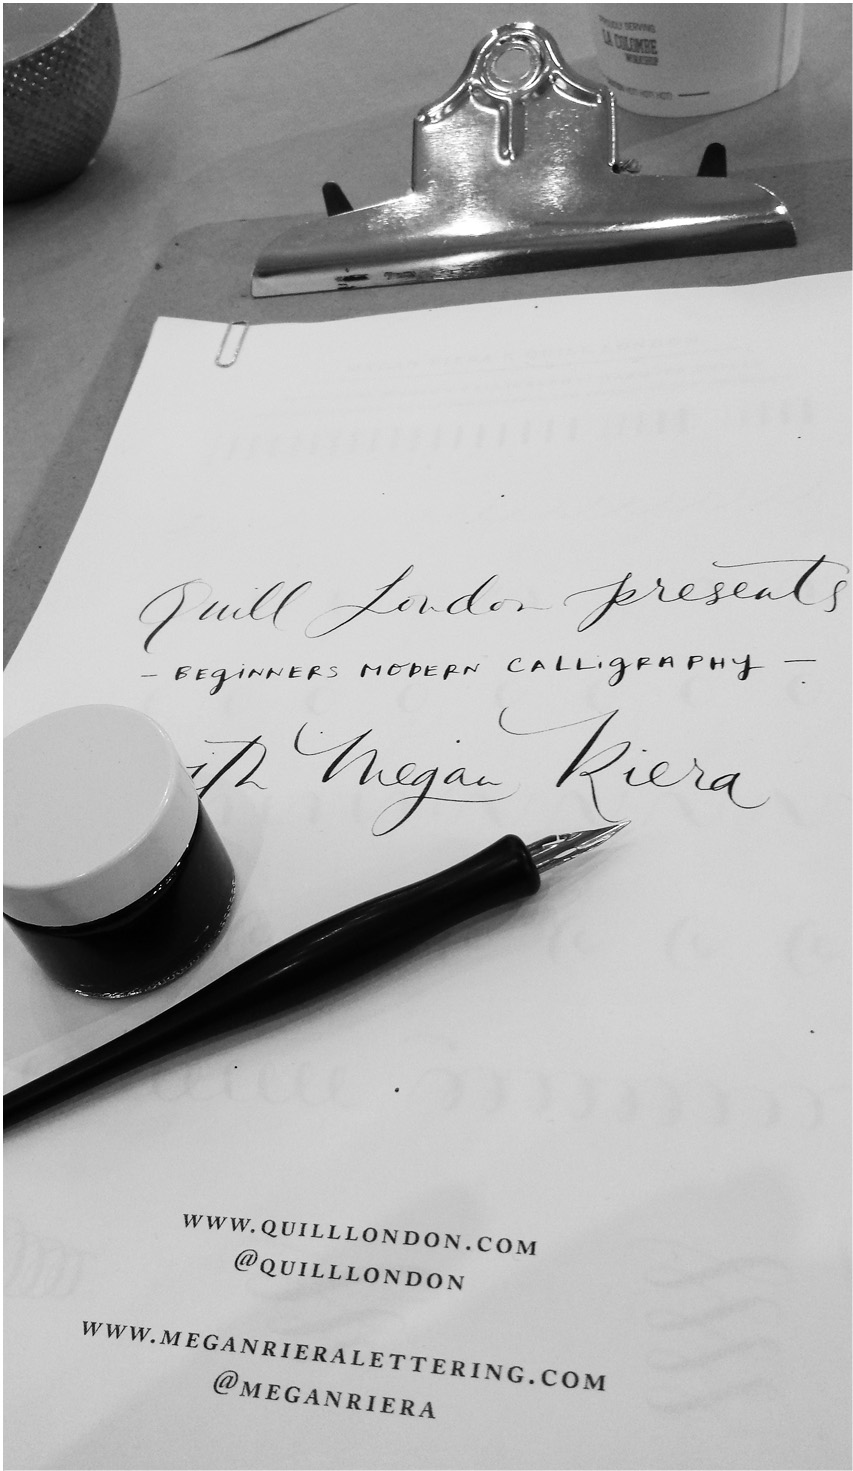 PROUDLY SERVING
LA COLOMBE
WORKSHOP
Quill London presents
— BEGiNNERS MODERN CALLiGRAPHY —
with Megan Riera
WWW.QUILLLONDON.COM
@QUILLLONDON
WWW.MEGANRIERALETTERING.COM
@MEGANRIERA